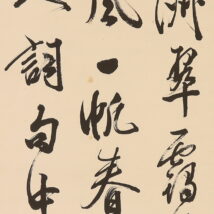 洲翠靄
風一帆春
詞句中